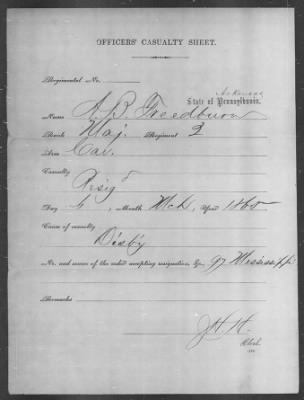 OFFICERS' CASUALTY SHEET.
Regimental No.
Arkansas
State of Pennsylvania.
Name A. B. Freedburn
Rank Maj. Regiment 2
Arm Cav.
Casualty
Resigd
Day 6, Month Mch, Year 1865
Cause of casualty
Disby
No. and source of the order accepting resignation, &c. 97 Mississippi
Remarks
J H H.
Clerk.